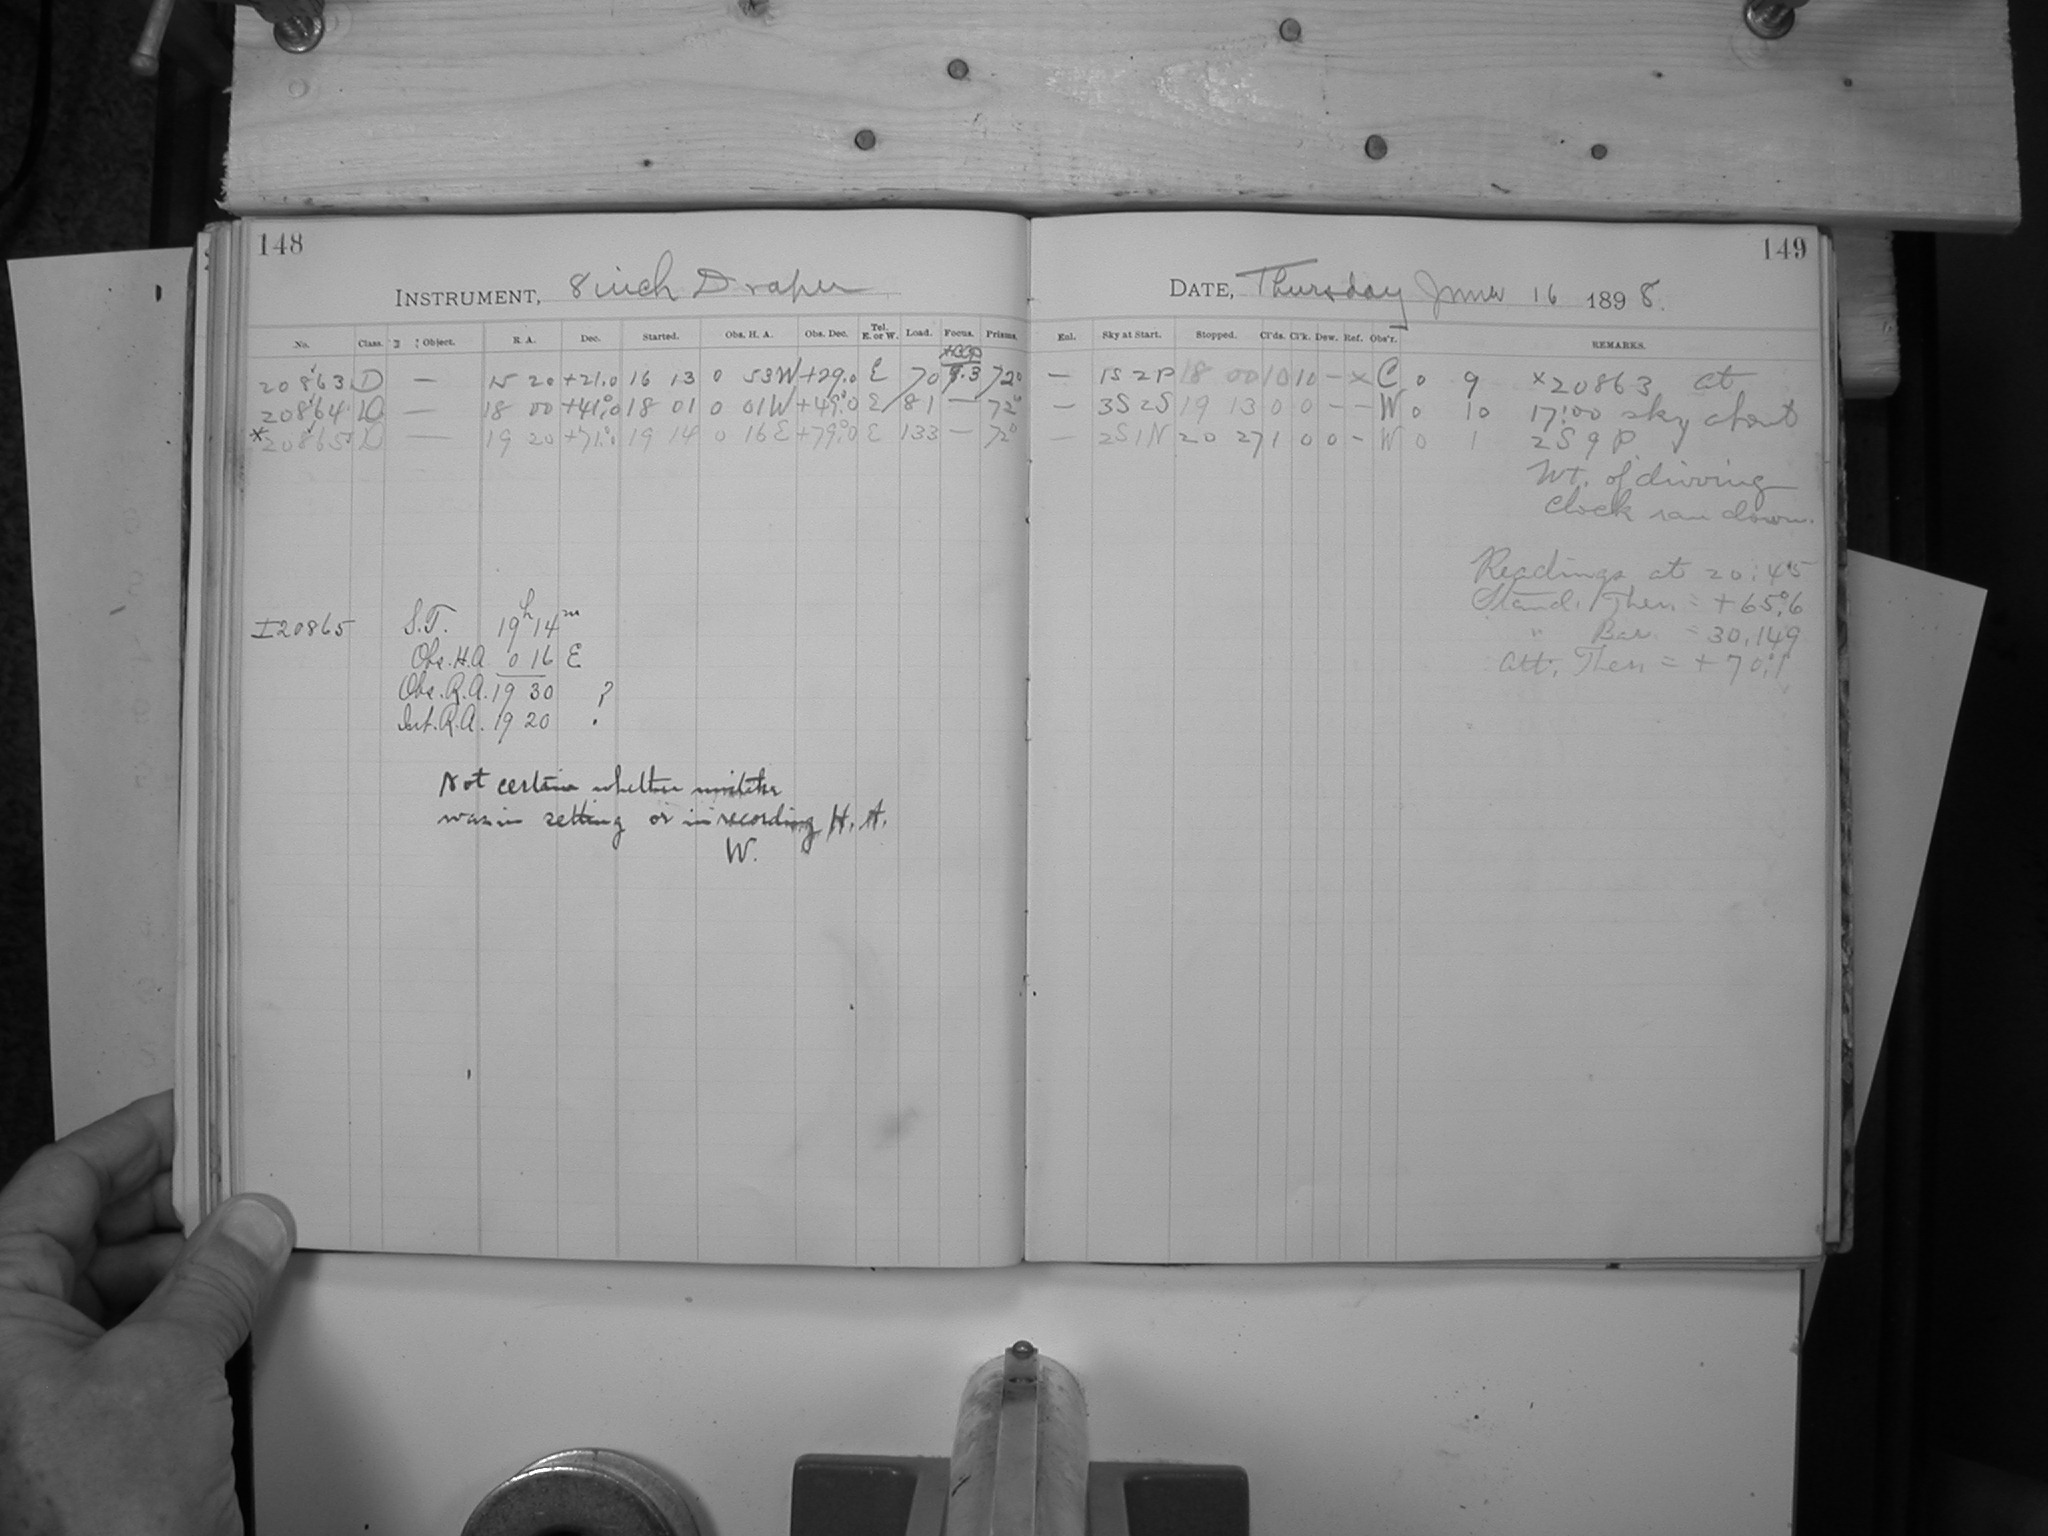 148
INSTRUMENT, 8 inch Draper
No. Class. Object. R. A. Dec. Started. Obs. H. A. Obs. Dec. Tel. E. or W. Load. Focus. Prisms.
20863 D — 15 20 +21.0 16 13 0 53W +29.0 E 70 9.3 72°
20864 D — 18 00 +41.0 18 01 0 01W +49.0 E 81 — 72°
*20865 D — 19 20 +71.0 19 14 0 16E +79.0 E 133 — 72°
I20865 S.T. 19h 14m
Obs. H.A. 0 16 E
Obs. R.A. 19 30 ?
Int. R.A. 19 20
Not certain whether mistake
was in setting or in recording H. A.
W.
149
DATE, Thursday June 16 1898.
Enl. Sky at Start. Stopped. Cl'ds. Cl'k. Dew. Ref. Obs'r. REMARKS.
— 1S 2P 18 00 10 10 — x C 0 9 x20863 at
— 3S 2S 19 13 0 0 — — W 0 10 17:00 sky about
— 2S 1N 20 27 1 0 0 - W 0 1 2S 9P
Wt. of driving
clock ran down.
Readings at 20:45
Stand. Ther. = +65.°6
" Bar. = 30.149
Att. Ther. = +70.°1